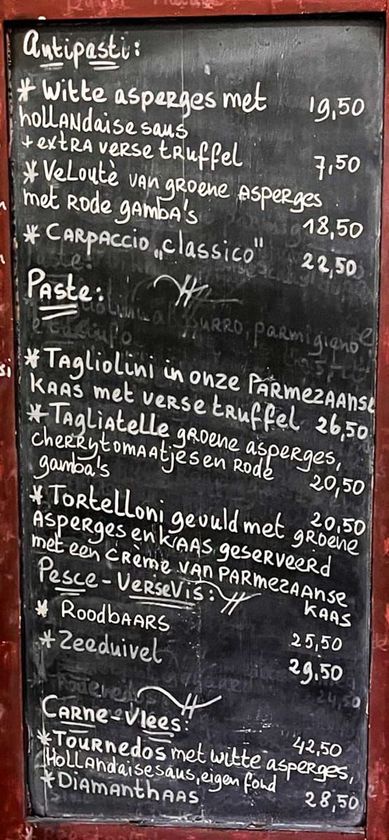 Antipasti:
* Witte asperges met 19,50
hollandaise saus
+ extra verse truffel 7,50
* Velouté van groene asperges
met rode gamba's 18,50
* Carpaccio „classico" 22,50
Paste:
* Tagliolini in onze Parmezaanse
kaas met verse truffel 26,50
* Tagliatelle groene asperges,
cherrytomaatjes en rode 20,50
gamba's
* Tortelloni gevuld met groene 20,50
asperges en kaas, geserveerd
met een crème van parmezaanse
kaas
Pesce - Verse Vis:
* Roodbaars 25,50
* Zeeduivel 29,50
Carne - Vlees:
* Tournedos met witte asperges, 42,50
Hollandaise saus, eigen fond
* Diamanthaas 28,50